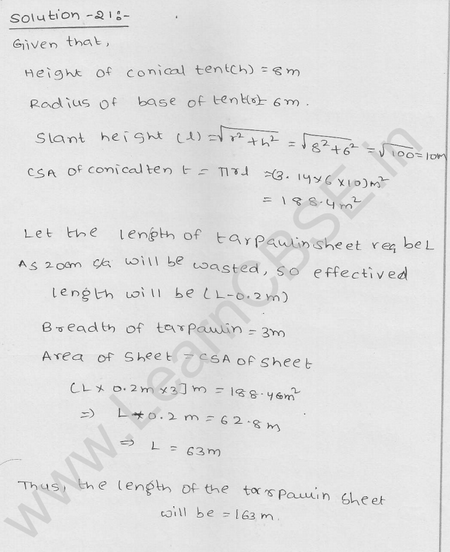 Solution -21:-
Given that,
Height of conical tent(h) = 8m
Radius of base of tent(r)= 6m.
Slant height (l) = √r²+h² = √8²+6² = √100 = 10m
CSA of conical tent = πrl = (3.14×6×10)m²
= 188.4m²
Let the length of tarpaulin sheet req be L
As 20cm will be wasted, so effective
length will be (L-0.2m)
Breadth of tarpaulin = 3m
Area of sheet = CSA of sheet
[L × 0.2m ×3] m = 188.40m²
⇒ L-0.2m = 62.8m
⇒ L = 63m
Thus, the length of the tarpaulin sheet
will be = 63m.
www.LearnCBSE.in